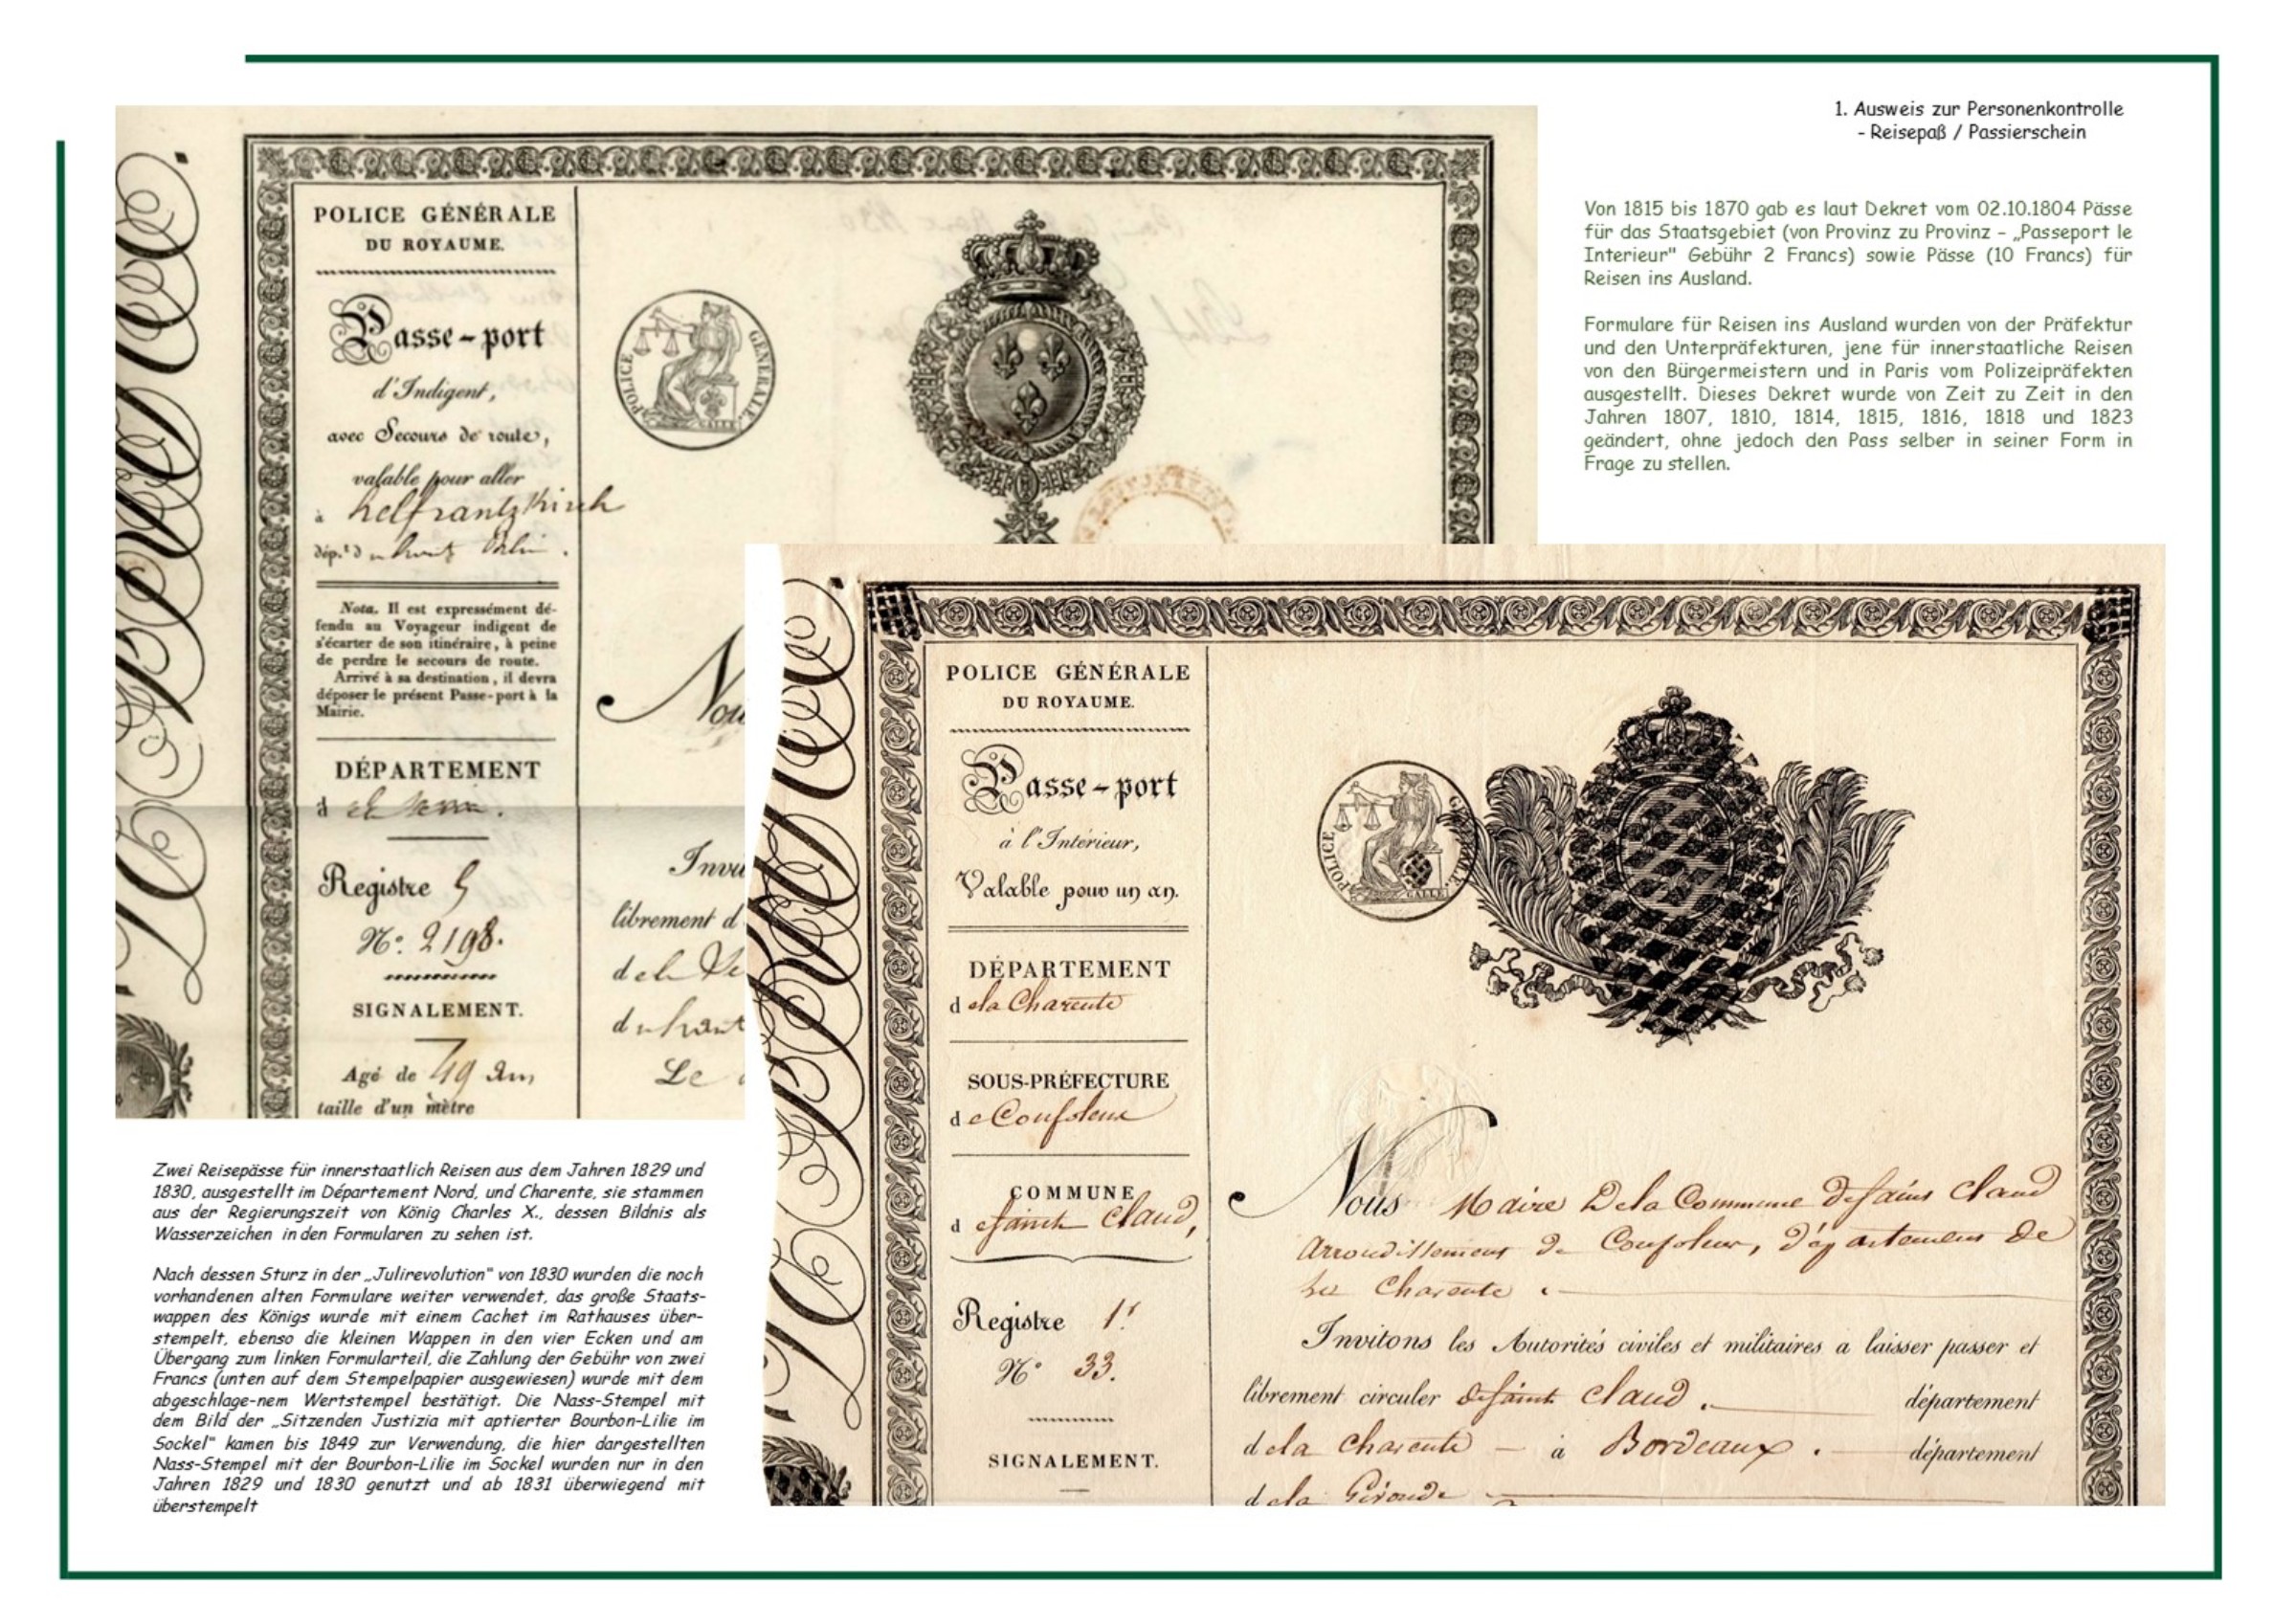 1. Ausweis zur Personenkontrolle
- Reisepaß / Passierschein
Von 1815 bis 1870 gab es laut Dekret vom 02.10.1804 Pässe
für das Staatsgebiet (von Provinz zu Provinz - „Passeport le
Interieur" Gebühr 2 Francs) sowie Pässe (10 Francs) für
Reisen ins Ausland.
Formulare für Reisen ins Ausland wurden von der Präfektur
und den Unterpräfekturen, jene für innerstaatliche Reisen
von den Bürgermeistern und in Paris vom Polizeipräfekten
ausgestellt. Dieses Dekret wurde von Zeit zu Zeit in den
Jahren 1807, 1810, 1814, 1815, 1816, 1818 und 1823
geändert, ohne jedoch den Pass selber in seiner Form in
Frage zu stellen.
POLICE GÉNÉRALE
DU ROYAUME.
Passe-port
d'Indigent,
avec Secours de route,
valable pour aller
à helfrantzkirch
dép.t d
Nota. Il est expressément dé-
fendu au Voyageur indigent de
s'écarter de son itinéraire, à peine
de perdre le secours de route.
Arrivé à sa destination, il devra
déposer le présent Passe-port à la
Mairie.
DÉPARTEMENT
d
Registre 5
N.º 2198.
SIGNALEMENT.
Agé de 49 ans
taille d'un mètre
POLICE GÉNÉRALE.
GALLE
Nou
Invi
librement d
de la
du haut
Le
POLICE GÉNÉRALE
DU ROYAUME.
Passe-port
à l'Intérieur,
Valable pour un an.
DÉPARTEMENT
de la Charente
SOUS-PRÉFECTURE
de Confolens
COMMUNE
de Saint Claud,
Registre 1.r
N.º 33.
SIGNALEMENT.
POLICE GÉNÉRALE.
GALLE
Nous Maire De la Commune De Saint Claud
arrondissement De Confolens, Département De
la Charente.
Invitons les Autorités civiles et militaires a laisser passer et
librement circuler de Saint Claud. département
de la Charente - à Bordeaux. département
de la Gironde
Zwei Reisepässe für innerstaatlich Reisen aus dem Jahren 1829 und
1830, ausgestellt im Département Nord, und Charente, sie stammen
aus der Regierungszeit von König Charles X., dessen Bildnis als
Wasserzeichen in den Formularen zu sehen ist.
Nach dessen Sturz in der „Julirevolution" von 1830 wurden die noch
vorhandenen alten Formulare weiter verwendet, das große Staats-
wappen des Königs wurde mit einem Cachet im Rathauses über-
stempelt, ebenso die kleinen Wappen in den vier Ecken und am
Übergang zum linken Formularteil, die Zahlung der Gebühr von zwei
Francs (unten auf dem Stempelpapier ausgewiesen) wurde mit dem
abgeschlage-nem Wertstempel bestätigt. Die Nass-Stempel mit
dem Bild der „Sitzenden Justizia mit aptierter Bourbon-Lilie im
Sockel" kamen bis 1849 zur Verwendung, die hier dargestellten
Nass-Stempel mit der Bourbon-Lilie im Sockel wurden nur in den
Jahren 1829 und 1830 genutzt und ab 1831 überwiegend mit
überstempelt